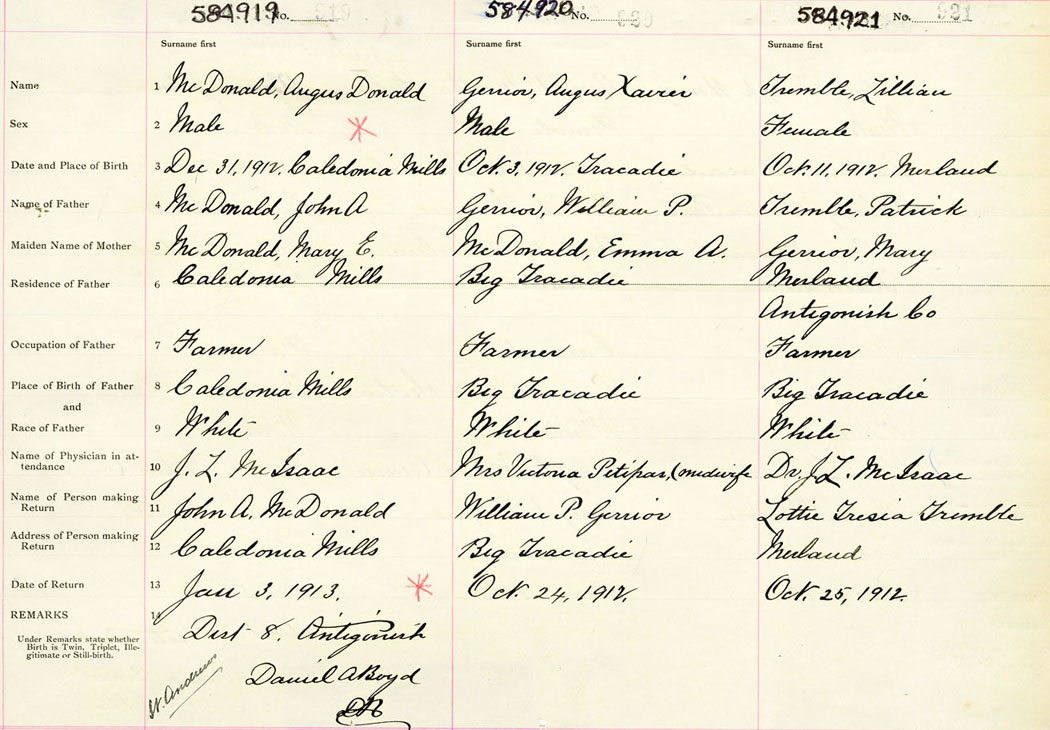 584919 No. 219 584920 No. 920 584921 No. 921
Surname first Surname first Surname first
Name 1 McDonald, Angus Donald Gerrior, Angus Xavier Tremble, Lillian
Sex 2 Male Male Female
Date and Place of Birth 3 Dec 31, 1912. Caledonia Mills Oct. 3, 1912. Tracadie Oct. 11, 1912. Merland
Name of Father 4 McDonald, John A Gerrior, William P. Tremble, Patrick
Maiden Name of Mother 5 McDonald, Mary E. McDonald, Emma A. Gerrior, Mary
Residence of Father 6 Caledonia Mills Big Tracadie Merland
Antigonish Co
Occupation of Father 7 Farmer Farmer Farmer
Place of Birth of Father 8 Caledonia Mills Big Tracadie Big Tracadie
and
Race of Father 9 White White White
Name of Physician in at-
tendance 10 J. L. McIsaac Mrs Victoria Petipas, (midwife Dr. J. L. McIsaac
Name of Person making
Return 11 John A. McDonald William P. Gerrior Lottie Tresia Tremble
Address of Person making
Return 12 Caledonia Mills Big Tracadie Merland
Date of Return 13 Jan 3, 1913. Oct. 24, 1912. Oct. 25, 1912.
REMARKS 14
Dist 8. Antigonish
Under Remarks state whether
Birth is Twin, Triplet, Ille-
gitimate or Still-birth.
Daniel A Boyd
St. Andrews